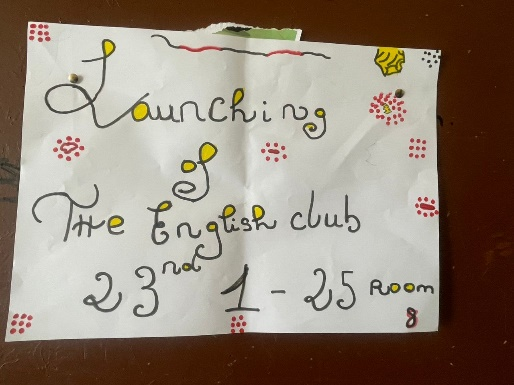 Launching
of
The English club
23nd 1-25 Room
8